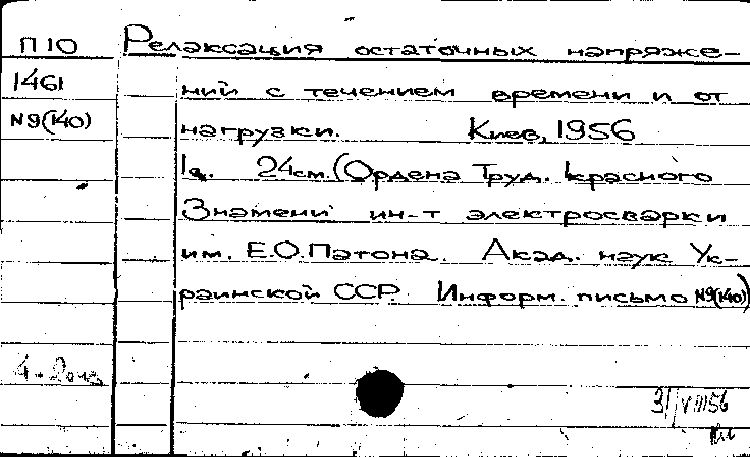 П10 Релаксация остаточных напряже-
1461 ний с течением времени и от
№9(140) нагрузки. Киев, 1956
1л. 24см. (Ордена Труд. Красного
Знамени ин-т электросварки
им. Е.О.Патона. Акад. наук Ук-
раинской ССР. Информ. письмо №9(140)
3/VIII56